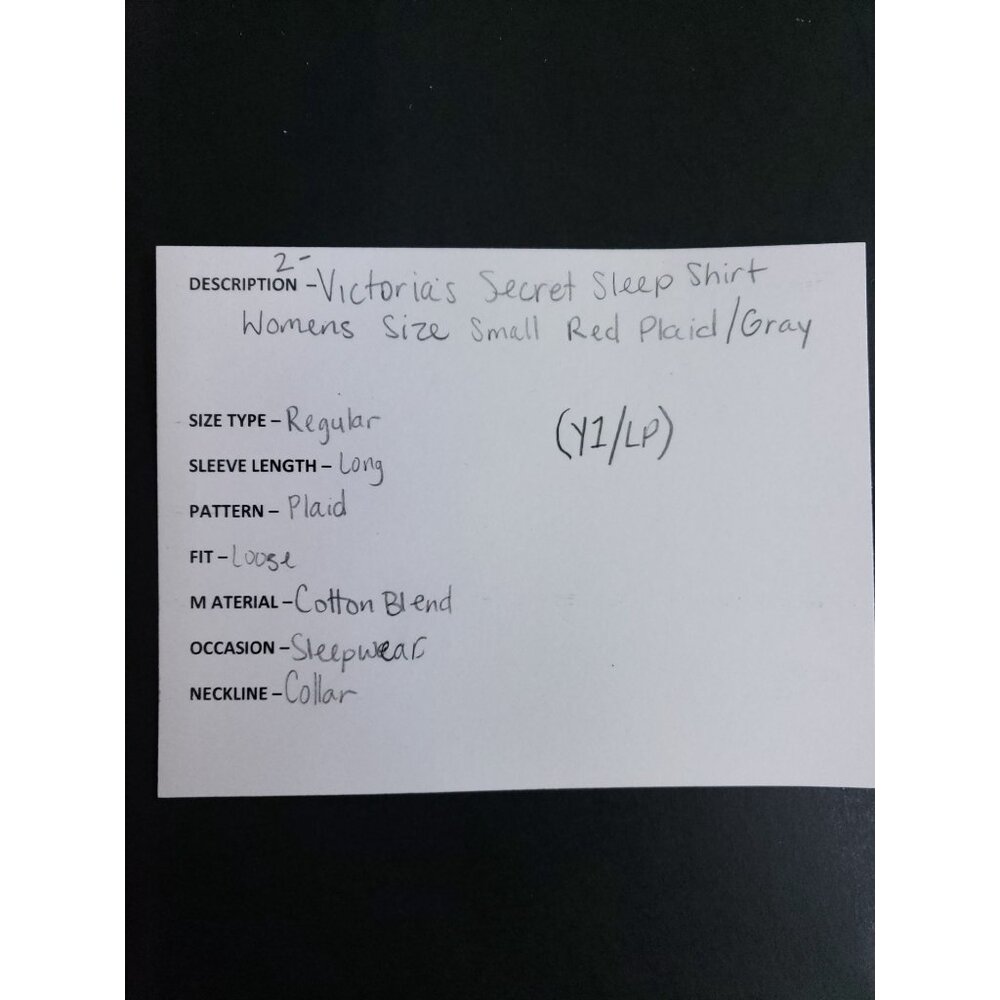 2-
DESCRIPTION - Victoria's Secret Sleep Shirt
Womens Size Small Red Plaid/Gray
SIZE TYPE – Regular
(Y1/LP)
SLEEVE LENGTH – Long
PATTERN – Plaid
FIT – Loose
M ATERIAL – Cotton Blend
OCCASION – Sleepwear
NECKLINE – Collar